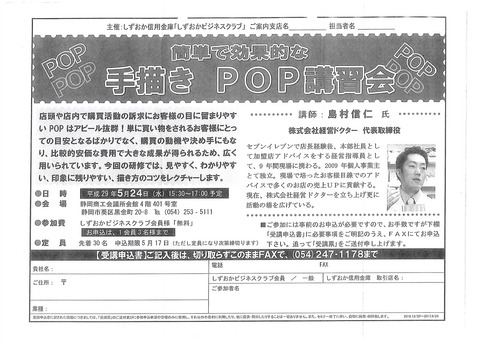 主催:しずおか信用金庫「しずおかビジネスクラブ」 ご案内支店名 担当者名
POP
POP
簡単で効果的な
手描き POP講習会
POP
POP
店頭や店内で購買活動の訴求にお客様の目に留まりやす
い POP はアピール抜群！単に買い物をされるお客様にとっ
ての目安となるばかりでなく、購買の動機や決め手にもな
り、比較的安価な費用で大きな成果が得られるため、広く
用いられています。今回の研修では、見やすく、わかりや
すい、印象に残りやすい、描き方のコツをレクチャーします。
●日 時 平成 29 年5月24日(水) 15:30～17:00 予定
●会 場 静岡商工会議所会館 4 階 401 号室
静岡市葵区黒金町 20-8 ℡ (054) 253-5111
●参加費 しずおかビジネスクラブ会員様「無料」
お申込は、1会員3名様まで
●定 員 先着 30 名 申込期限 5 月 17 日 (ただし定員になり次第締切ります)
講師：島村信仁 氏
株式会社経営ドクター 代表取締役
セブンイレブンで店長経験後、本部社員とし
て加盟店アドバイスをする経営指導員とし
て、9 年間現場に携わる。2009 年個人事業主
として独立。現場で培ったお客様目線でのア
ドバイスで多くのお店の売上UPに貢献する。
現在、株式会社経営ドクターを立ち上げ更に
活動の幅を広げている。
■ご参加には事前のお申込が必要ですので、お手数ですが下欄
「受講申込書」に必要事項をご明記のうえ、FAXにてお申込
下さい。追って「受講票」をご送付申し上げます。
【受講申込書】ご記入後は、切り取らずこのままFAXで、(054) 247-1178まで
貴社名： 電話 FAX
ご住所： 〒 しずおかビジネスクラブ会員 ／ 一般 しずおか信用金庫 取引店名：
ご参加者名
業種：